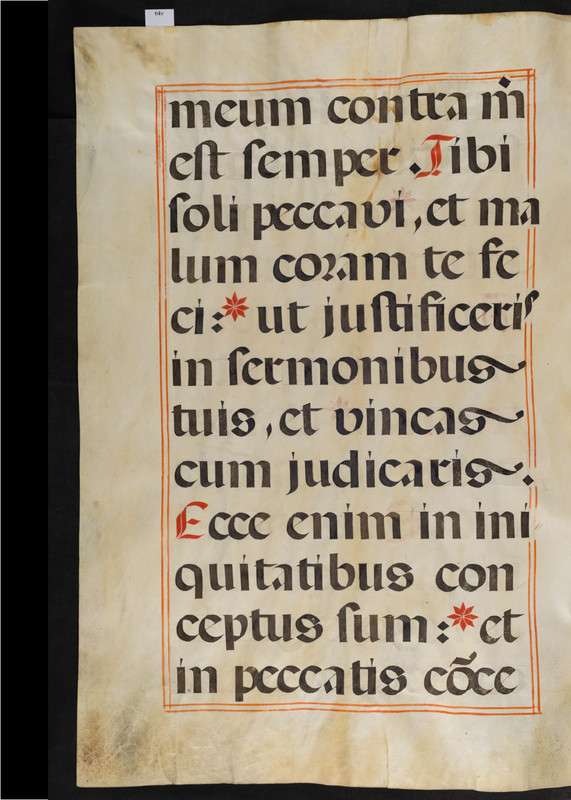 64v
meum contra m̄
eſt ſemper. Tibi
ſoli peccavi, et ma
lum coꝛam te fe
ci:* ut juſtificeris
in ſermonibus
tuis, et vincas
cum judicaris.
Ecce enim in ini
quitatibus con
ceptus ſum:* et
in peccatis cōce